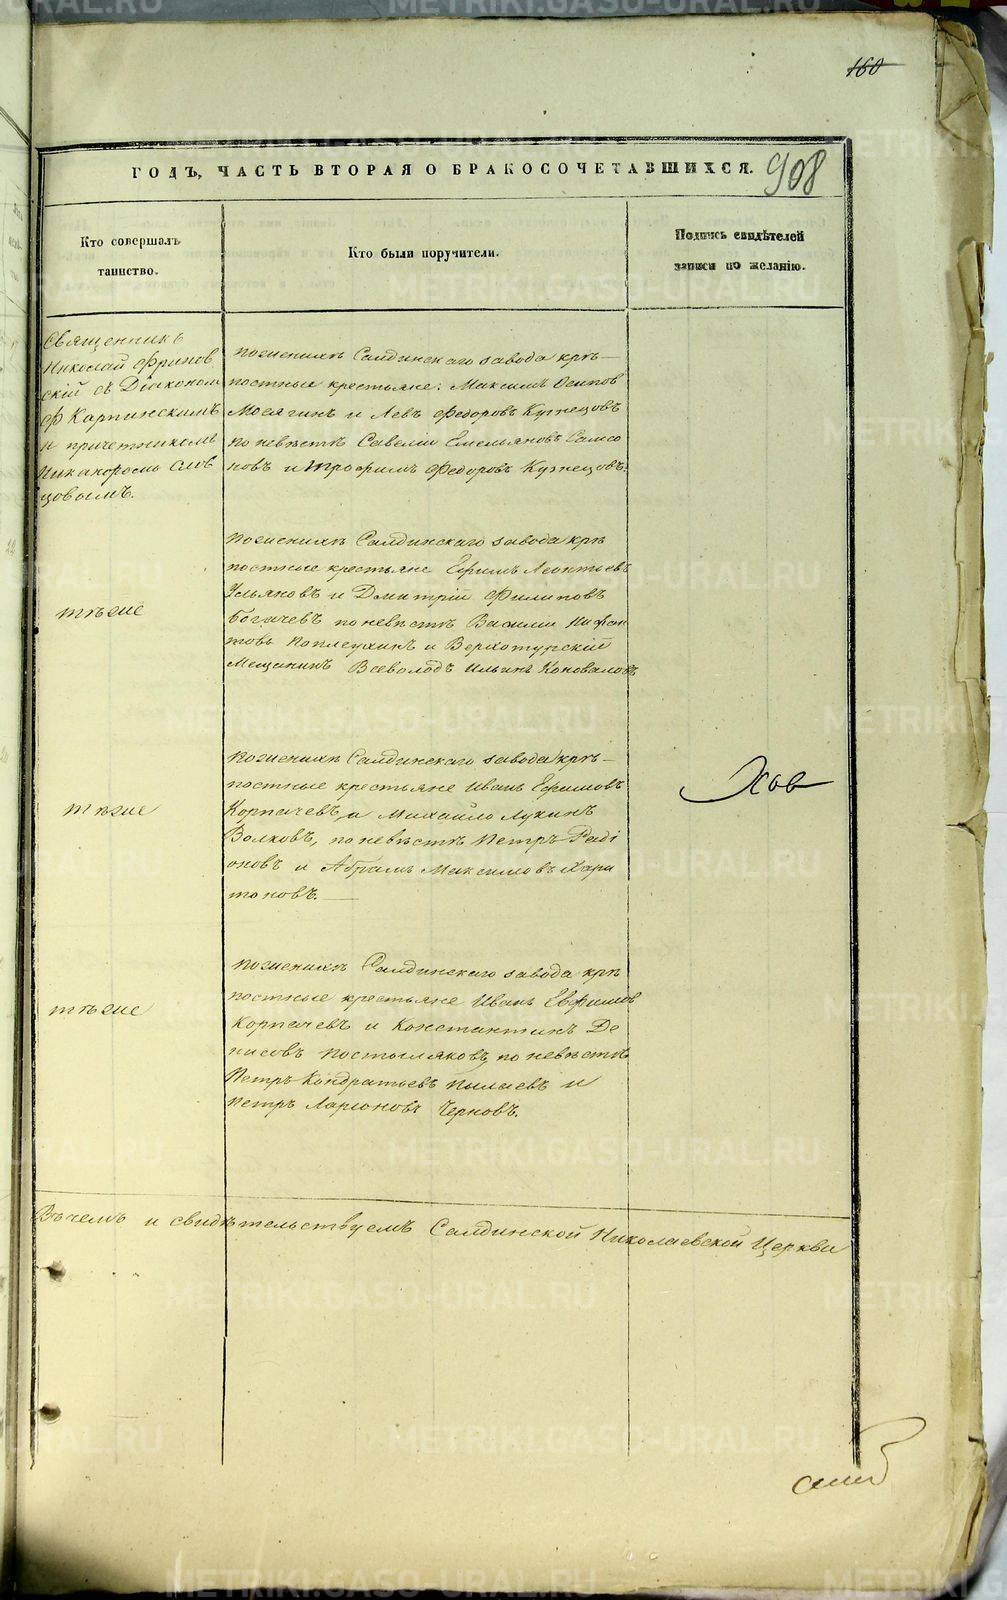 160
ГОДЪ, ЧАСТЬ ВТОРАЯ О БРАКОСОЧЕТАВШИХСЯ.
908
Кто совершалъ
таинство.
Кто были поручители.
Подпись свидѣтелей
записи по желанію.
Священникъ
Николай
скій съ Діакономъ
Карпинскимъ
и причетникомъ
Никаноромъ
цовымъ.
по женихѣ Салдинскаго завода крѣ-
постные крестьяне: Максимъ Осиповъ
Мосягинъ и Левъ Федоровъ Кузнецовъ
по невѣстѣ Савелій Емельяновъ Самсо
новъ и Трофимъ Федоровъ Кузнецовъ.
тѣ же
по женихѣ Салдинскаго завода крѣ
постные крестьяне Ефимъ Леонтьевъ
Ульяновъ и Дмитрій Филиповъ
Богачевъ по невѣстѣ Василій Нифон
товъ Поплеухинъ и Верхотурскій
Мещанинъ Всеволодъ Ильинъ Коноваловъ
тѣ же
по женихѣ Салдинскаго завода крѣ-
постные крестьяне Иванъ Ефимовъ
Корпачевъ, и Михайло Лукинъ
Волковъ, по невѣстѣ Петръ Раді
оновъ и Абрамъ Максимовъ Хари
тоновъ.
тѣ же
по женихѣ Салдинскаго завода крѣ
постные крестьяне Иванъ Евфимов
Корпачевъ и Константинъ Де
нисовъ Постоляковъ, по невѣстѣ
Петръ Кондратьевъ Пылаевъ и
Петръ Ларіоновъ Черновъ.
Въ чемъ и свидѣтельствуемъ Салдинской Николаевской Церкви
METRIKI.GASO-URAL.RU